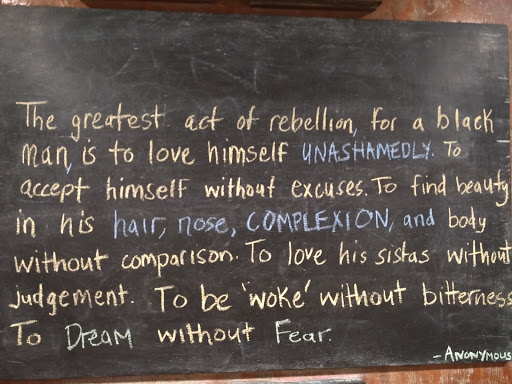 The greatest act of rebellion, for a black
man, is to love himself UNASHAMEDLY. To
accept himself without excuses. To find beauty
in his hair, nose, COMPLEXION, and body
without comparison. To love his sistas without
judgement. To be 'woke' without bitterness
To Dream without Fear.
- ANONYMOUS